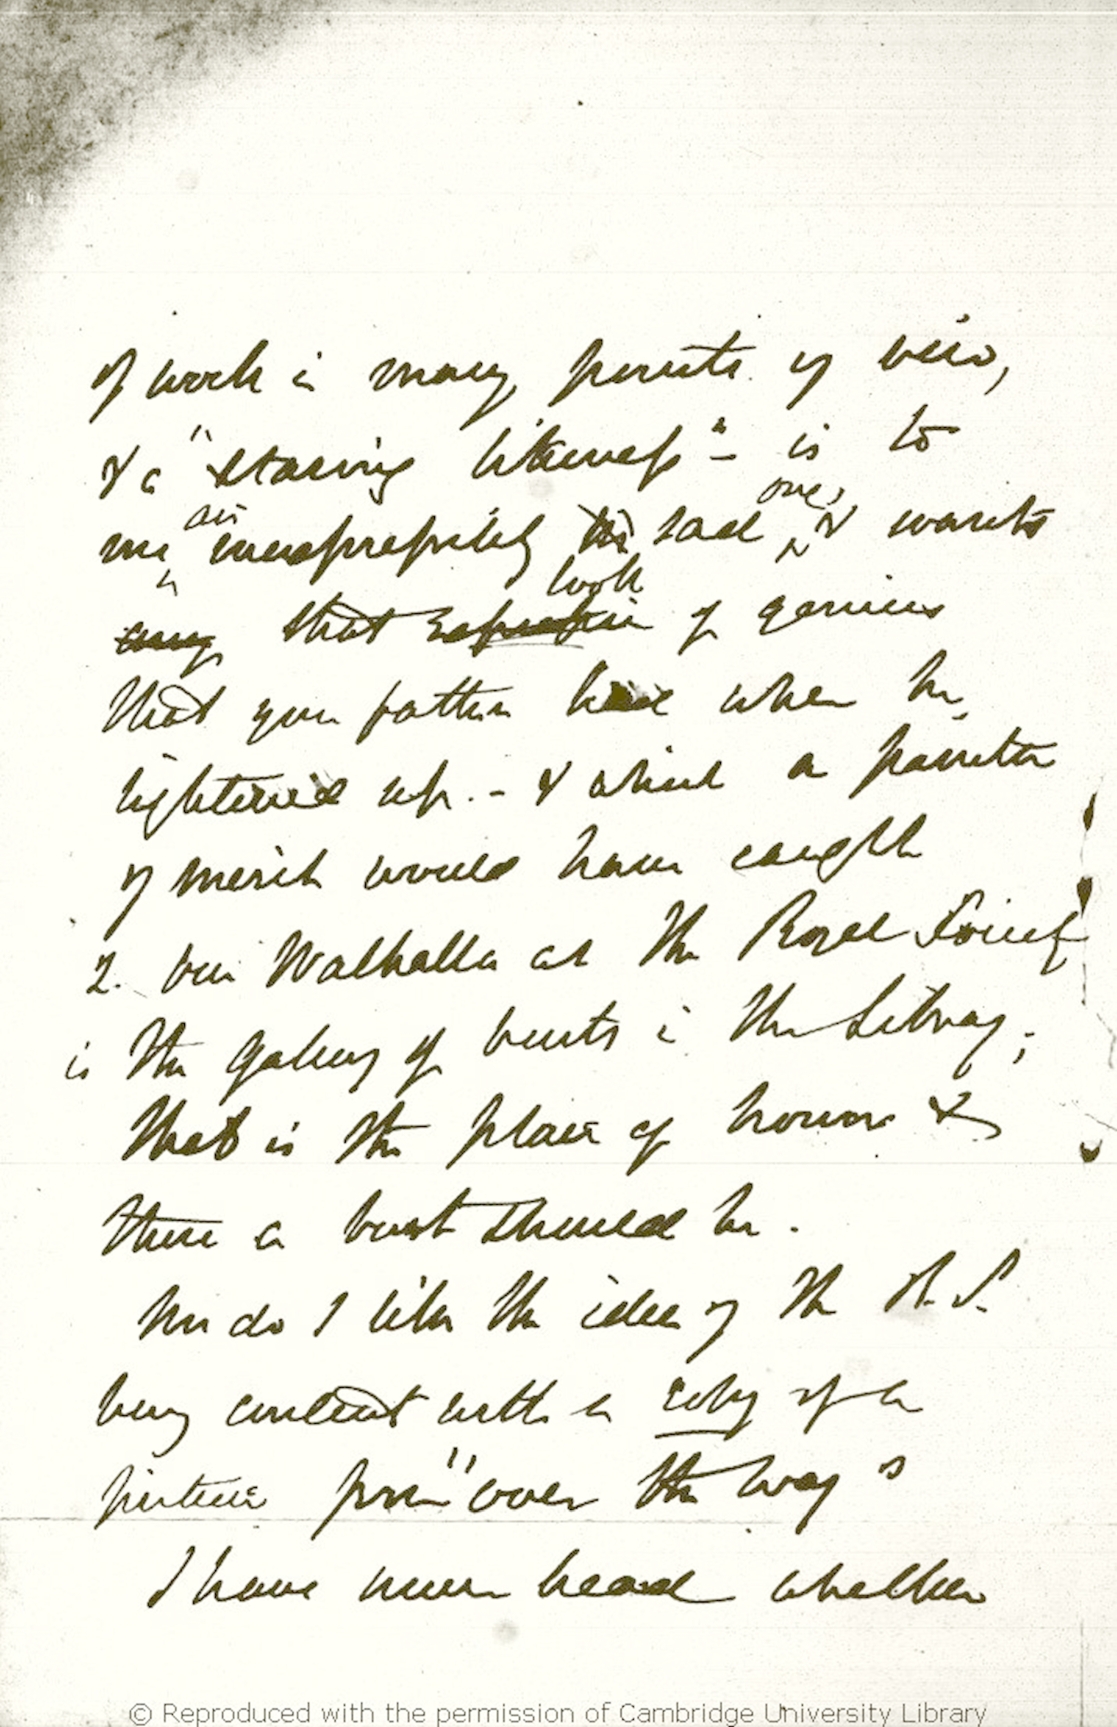 of work in many points of view,
& a "staring likeness" – is to
me an inexpressibly sad one, & wants
any that look of genius
that your father had when he
lightened up. – & which a painter
of merit would have caught
2. Our Walhalla at the Royal Society
is the gallery of busts in the Library;
that is the place of honour &
there a bust should be.
Nor do I like the idea of the R. S.
being content with a copy of a
picture from "over the way"
I have never heard whether
© Reproduced with the permission of Cambridge University Library